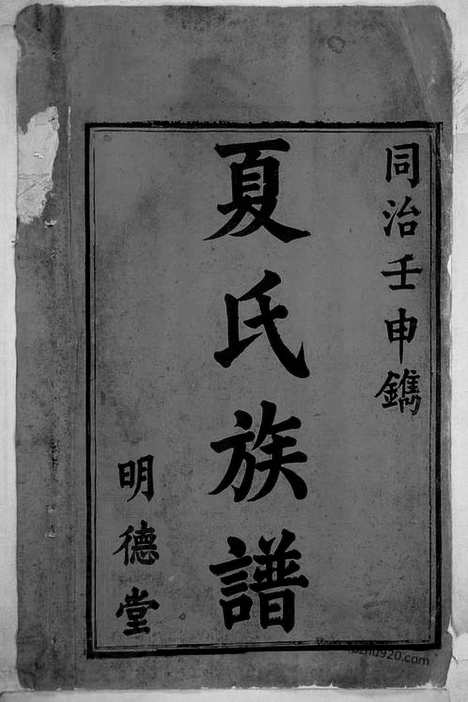 同治壬申鐫
夏氏族譜
明德堂